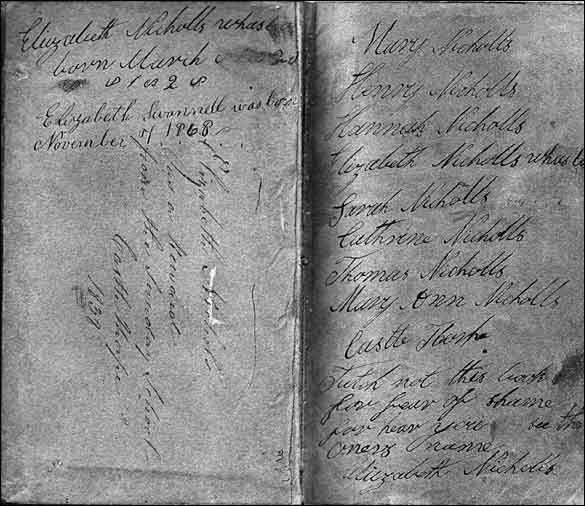 Elizabeth Nicholls whas
born March
1828
Elizabeth Swannell was born
November 5 1868
Elizabeth Nicholls
as a Reward
from the Sunday School
Castlethorpe
1839
Mary Nicholls
Henry Nicholls
Hannah Nicholls
Elizabeth Nicholls whas
Sarah Nicholls
Cathrine Nicholls
Thomas Nicholls
Mary Ann Nicholls
Castle Thorpe
not this book
for fear of shame
for hear you see the
oners name
Elizabeth Nicholls